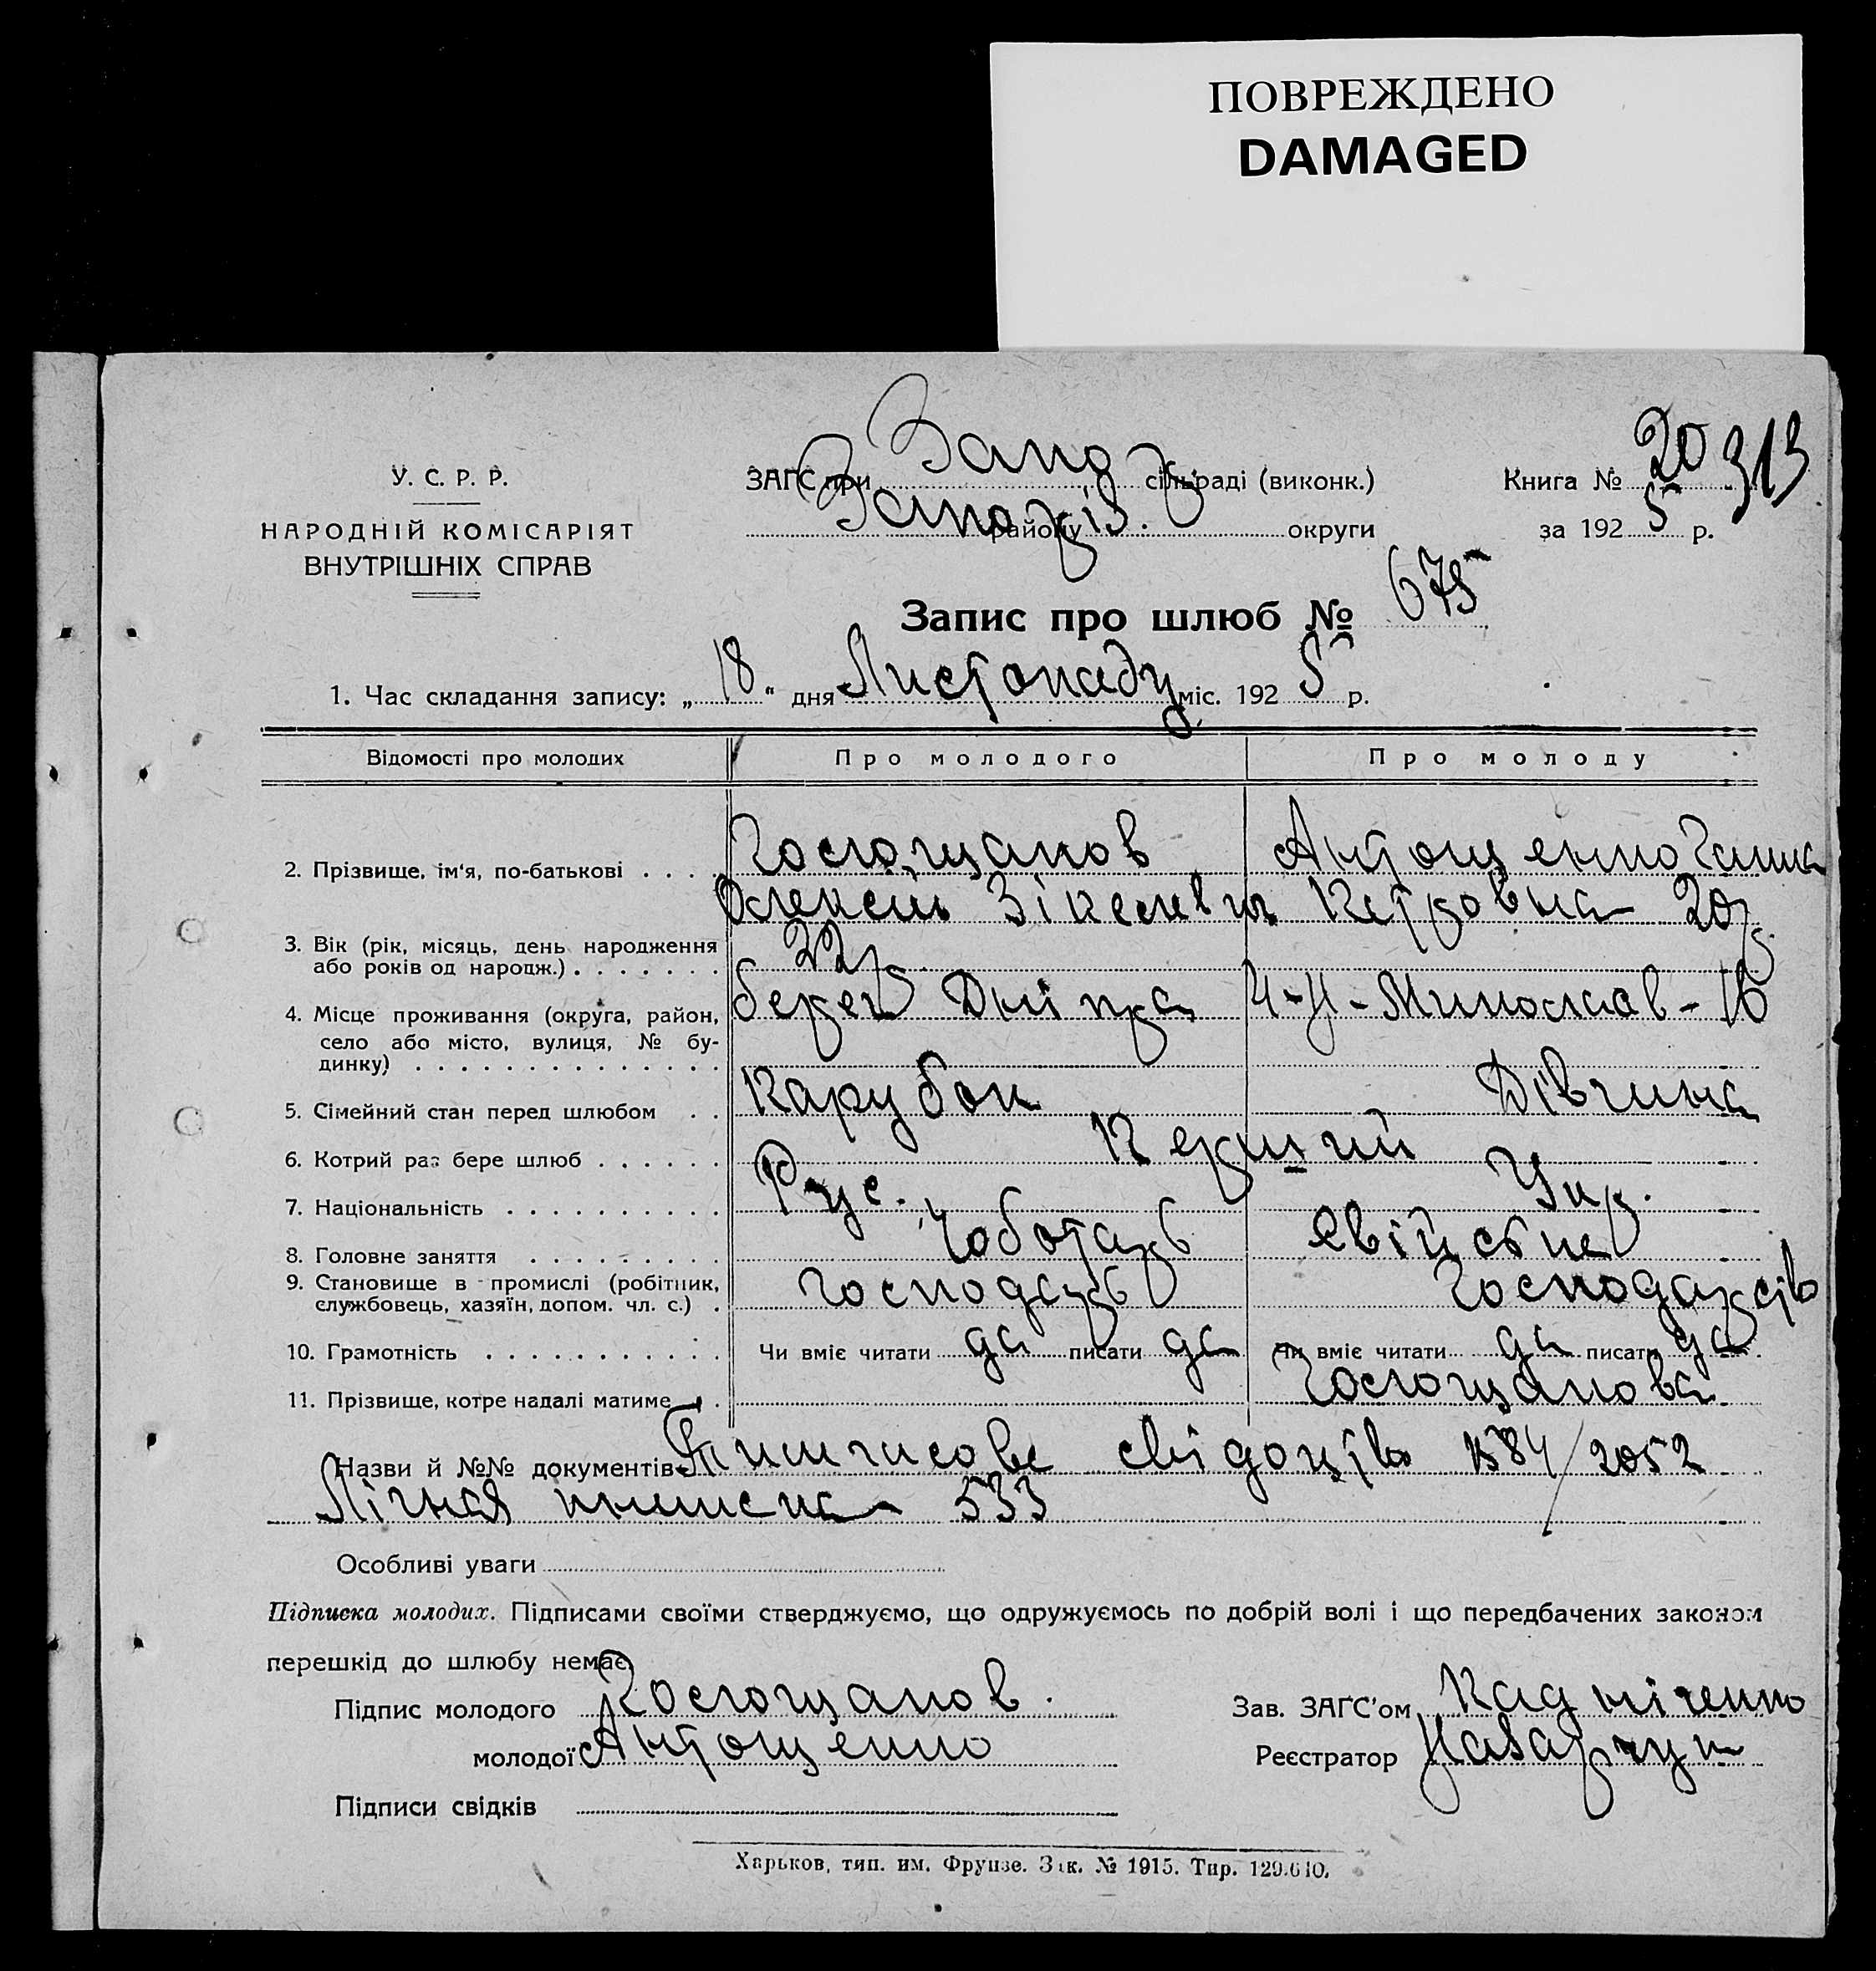 ПОВРЕЖДЕНО
DAMAGED
У. С. Р. Р.
НАРОДНІЙ КОМІСАРІЯТ
ВНУТРІШНІХ СПРАВ
ЗАГС при Запор сільраді (виконк.)
Запоріз. району округи
Книга № 20 313
за 1925 р.
Запис про шлюб № 675
1. Час складання запису: „18“ дня Листопаду міс. 1925 р.
Відомості про молодих Про молодого Про молоду
2. Прізвище, ім'я, по-батькові . . . . Антощенко Ганна
Олексій Петровна 20 р
3. Вік (рік, місяць, день народження
або років од народж.) . . . . . . . 22 р
4. Місце проживання (округа, район,
село або місто, вулиця, № бу-
динку) . . . . . . . . . . . . . . . берег Дніпра
5. Сімейний стан перед шлюбом . . Карубок Дівчина
6. Котрий раз бере шлюб . . . . . . Перший
7. Національність . . . . . . . . . . Рус. Укр.
8. Головне заняття . . . . . . . . . Чоботарь свійське
9. Становище в промислі (робітник,
службовець, хазяїн, допом. чл. с.) . господарь господарств
10. Грамотність . . . . . . . . . . . Чи вміє читати да писати да Чи вміє читати да писати да
11. Прізвище, котре надалі матиме .
Назви й №№ документів свідоцтво 1584/2052
Лічная книжка 533
Особливі уваги
Підписка молодих. Підписами своїми стверджуємо, що одружуємось по добрій волі і що передбачених законом
перешкід до шлюбу немає.
Підпис молодого
Зав. ЗАГС'ом
молодої Антощенко
Реєстратор Назарчук
Підписи свідків
Харьков, тип. им. Фрунзе. Зак. № 1915. Тир. 129.640.